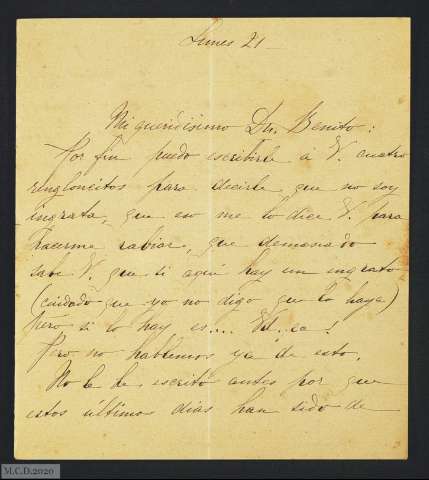 Lunes 21
Mi queridísimo Dn. Benito:
Por fin puedo escribirle á V. cuatro
rengloncitos para decirle, que no soy
ingrata, que eso me lo dice V. para
hacerme rabiar, que demasiado
sabe V. que si aquí hay un ingrato
(cuidado que yo no digo que lo haya)
pero si lo hay es.... Vd..ea!
Pero no hablemos ya de esto.
No le he escrito antes por que
estos últimos dias han sido de
M.C.D.2020